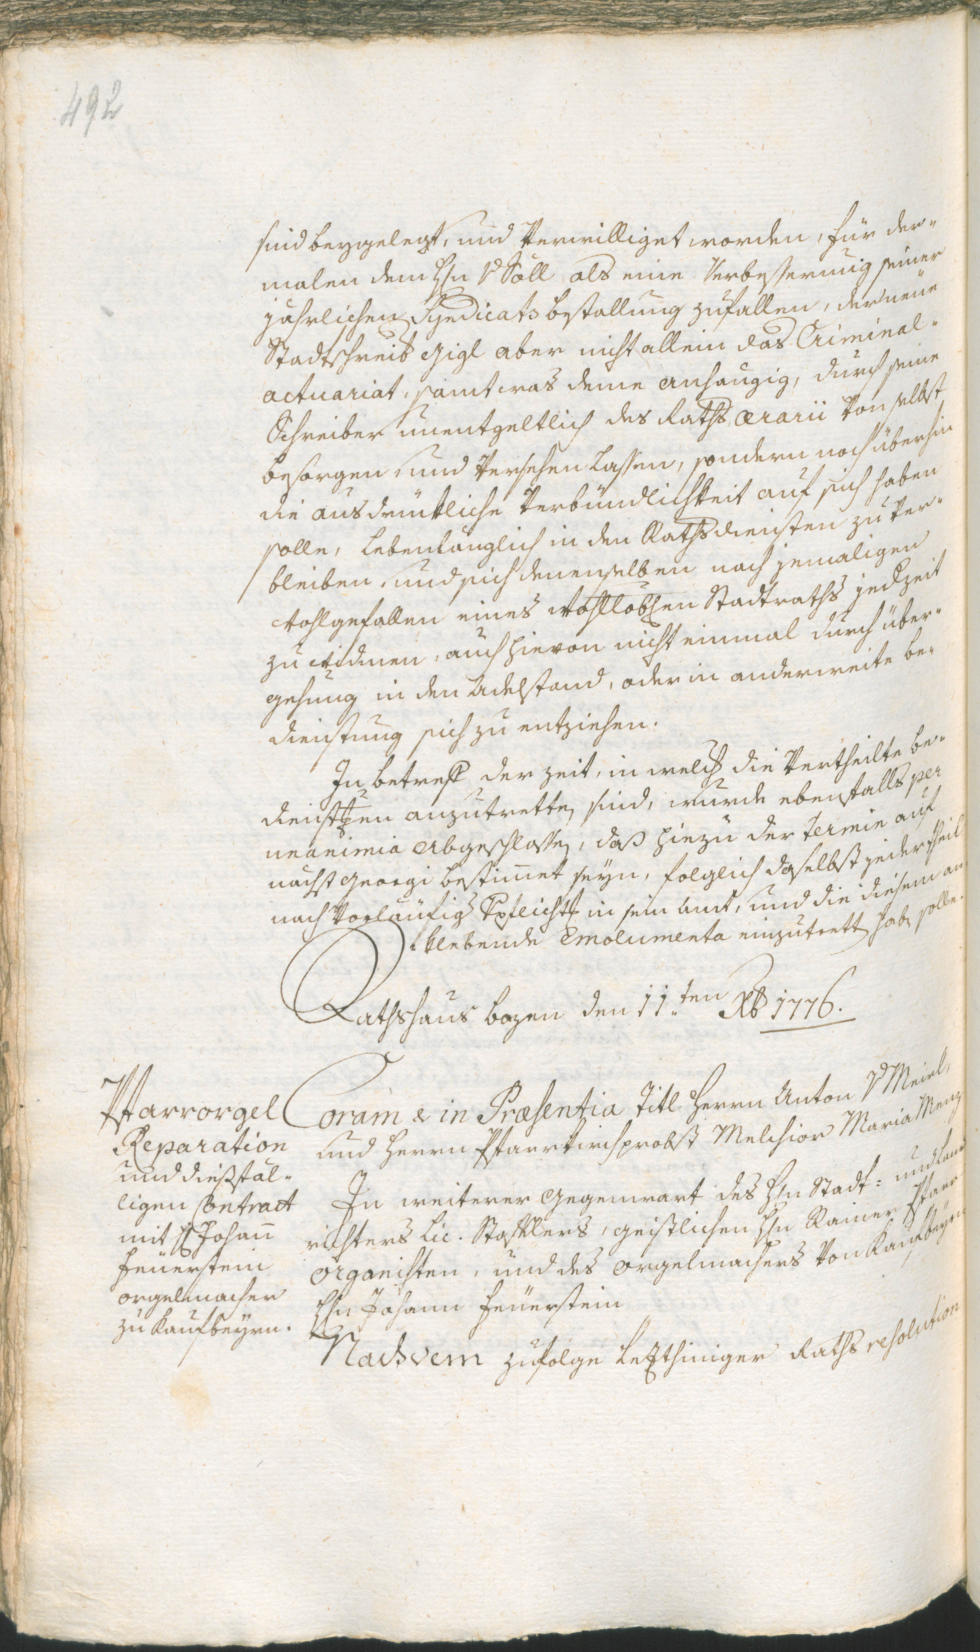 492
sind beygelegt, und verwilliget worden, für der-
malen dem Hn v Söll als eine verbesserung seiner
jährlichen Syndicats bestallung zufallen, der neüe
Stadtschreib Gigl aber nicht allein das Criminal-
actuariat, samt was deme anhangig, durch seine
Schreiber unentgeltlich des Raths ærarii von selbst
besorgen, und versehen lassen, sondern noch überhin
die ausdrükliche verbündlichkeit auf sich haben
solle, lebenlänglich in den Rathsdiensten zu ver-
bleiben, und sich denenselben nach jemaligen
wohlgefallen eines wohllobhen Stadtraths jedzeit
zu widmen, auch hievon nicht einmal durch über-
gehung in den Adelstand, oder in anderweite be-
dienstung sich zu entziehen.
In betref der zeit, in welch die vertheilte be-
dienstgen anzutretten sind, wurde ebenfalls per
unanimia abgeschlossen, daß hiezu der Termin auf
nächst Georgi bestimmet seyn, folglich daselbst jeder theil
nach vorläufig Pflicht in sein Amt, und die diesem an-
klebende Emolumenta einzutrett hab solle.
Rathshaus bozen den 11.ten Xb 1776.
Pfarrorgel
Reparation
und dießfäl-
ligen Contract
mit H Johann
Feüerstein
orgelmacher
zu Kaufbeyrn.
Coram & in Præsentia Titl Herrn Anton v Meierl,
und Herrn Pfarrkirchprobst Melchior Maria Menz
In weiterer Gegenwart des Hn Stadt- und Land
richters Lic. Stafflers, geistlichen Hn Rainer Pfarr
organisten, und des orgelmachers von Kaufbeyrn
Hn Johann Feüerstein
Nachdem zufolge lezthiniger Raths resolution